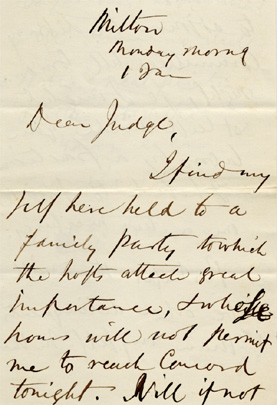 Milton
Monday morng
1 Jan
Dear Judge,
I find my
self here held to a
family party to which
the hosts attach great
importance, & whose
hours will not permit
me to reach Concord
tonight. Will it not